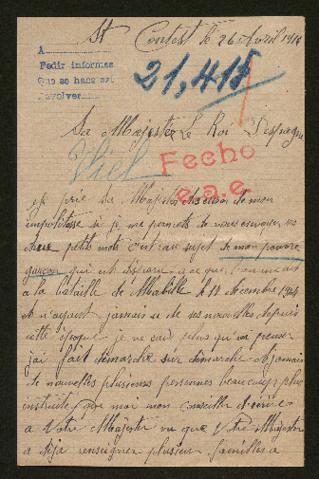 St Contest le 26 Avril 1915
A
Pedir informes
Que se hace así
Devolver
21,415
Sa Majesté Le Roi D'espagne
Viel
Fecho
e.a.e.
je prie Sa Majesté de mon
impolitesse si je me permets de vous envoyer ces
deux petits mots c'est au sujet de mon pauvre
garçon qui est disparu a ce que
a la bataille de 17 decembre 1914
et n'ayant jamais eu de ses nouvelles depuis
cette époque je ne sais plus qu'en penser
j'ai fait démarche sur démarche et jamais
de nouvelles plusieurs personnes beaucoup plus
instruite que moi mon conseiller d'écrire
a Votre Majesté vu que Votre Majesté
a déja renseigner plusieurs familles a